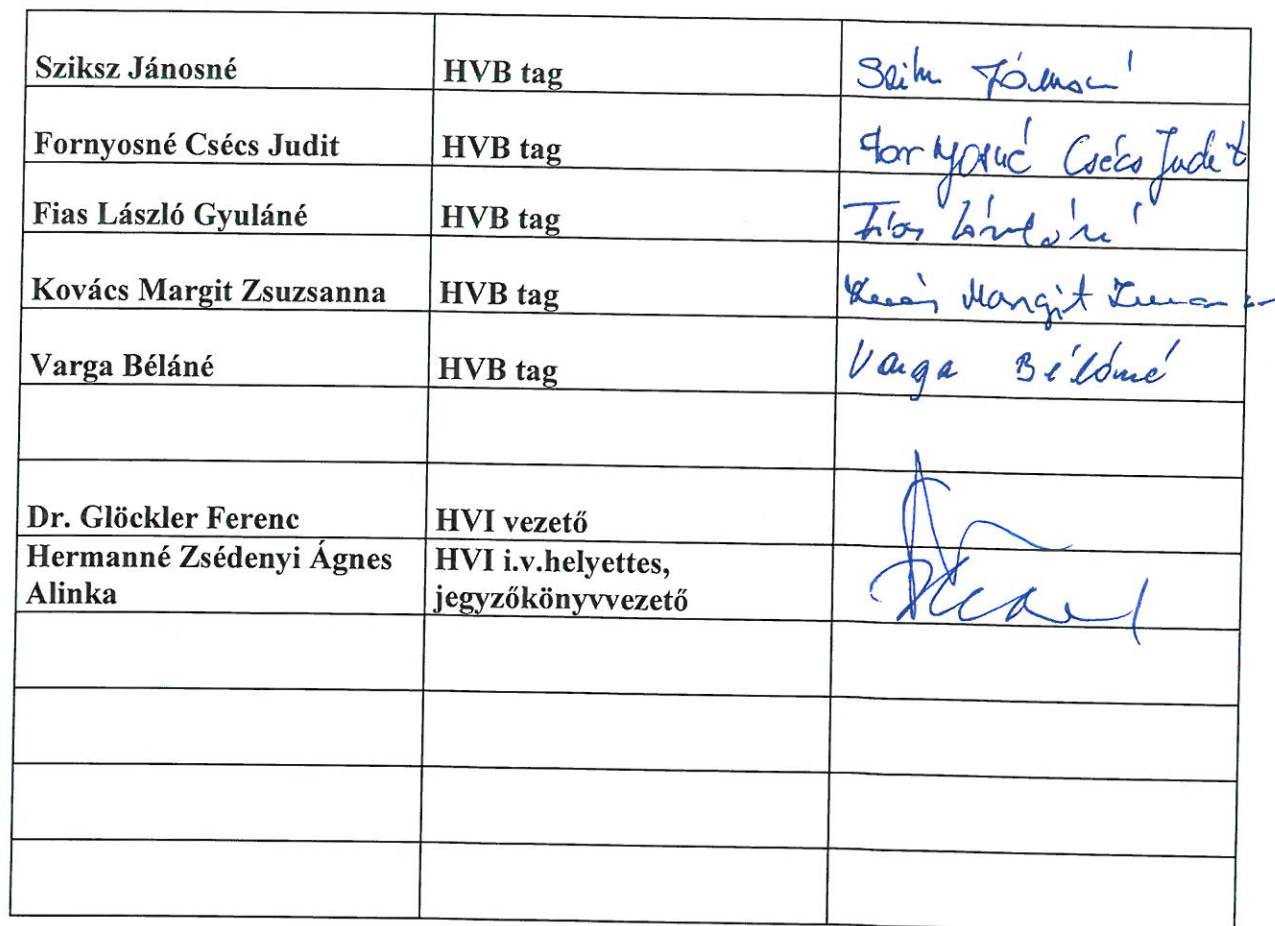 Sziksz Jánosné HVB tag
Fornyosné Csécs Judit HVB tag Fornyosné Csécs Judit
Fias László Gyuláné HVB tag
Kovács Margit Zsuzsanna HVB tag Margit
Varga Béláné HVB tag Varga Béláné
Dr. Glöckler Ferenc HVI vezető
Hermanné Zsédenyi Ágnes HVI i.v.helyettes,
Alinka jegyzőkönyvvezető